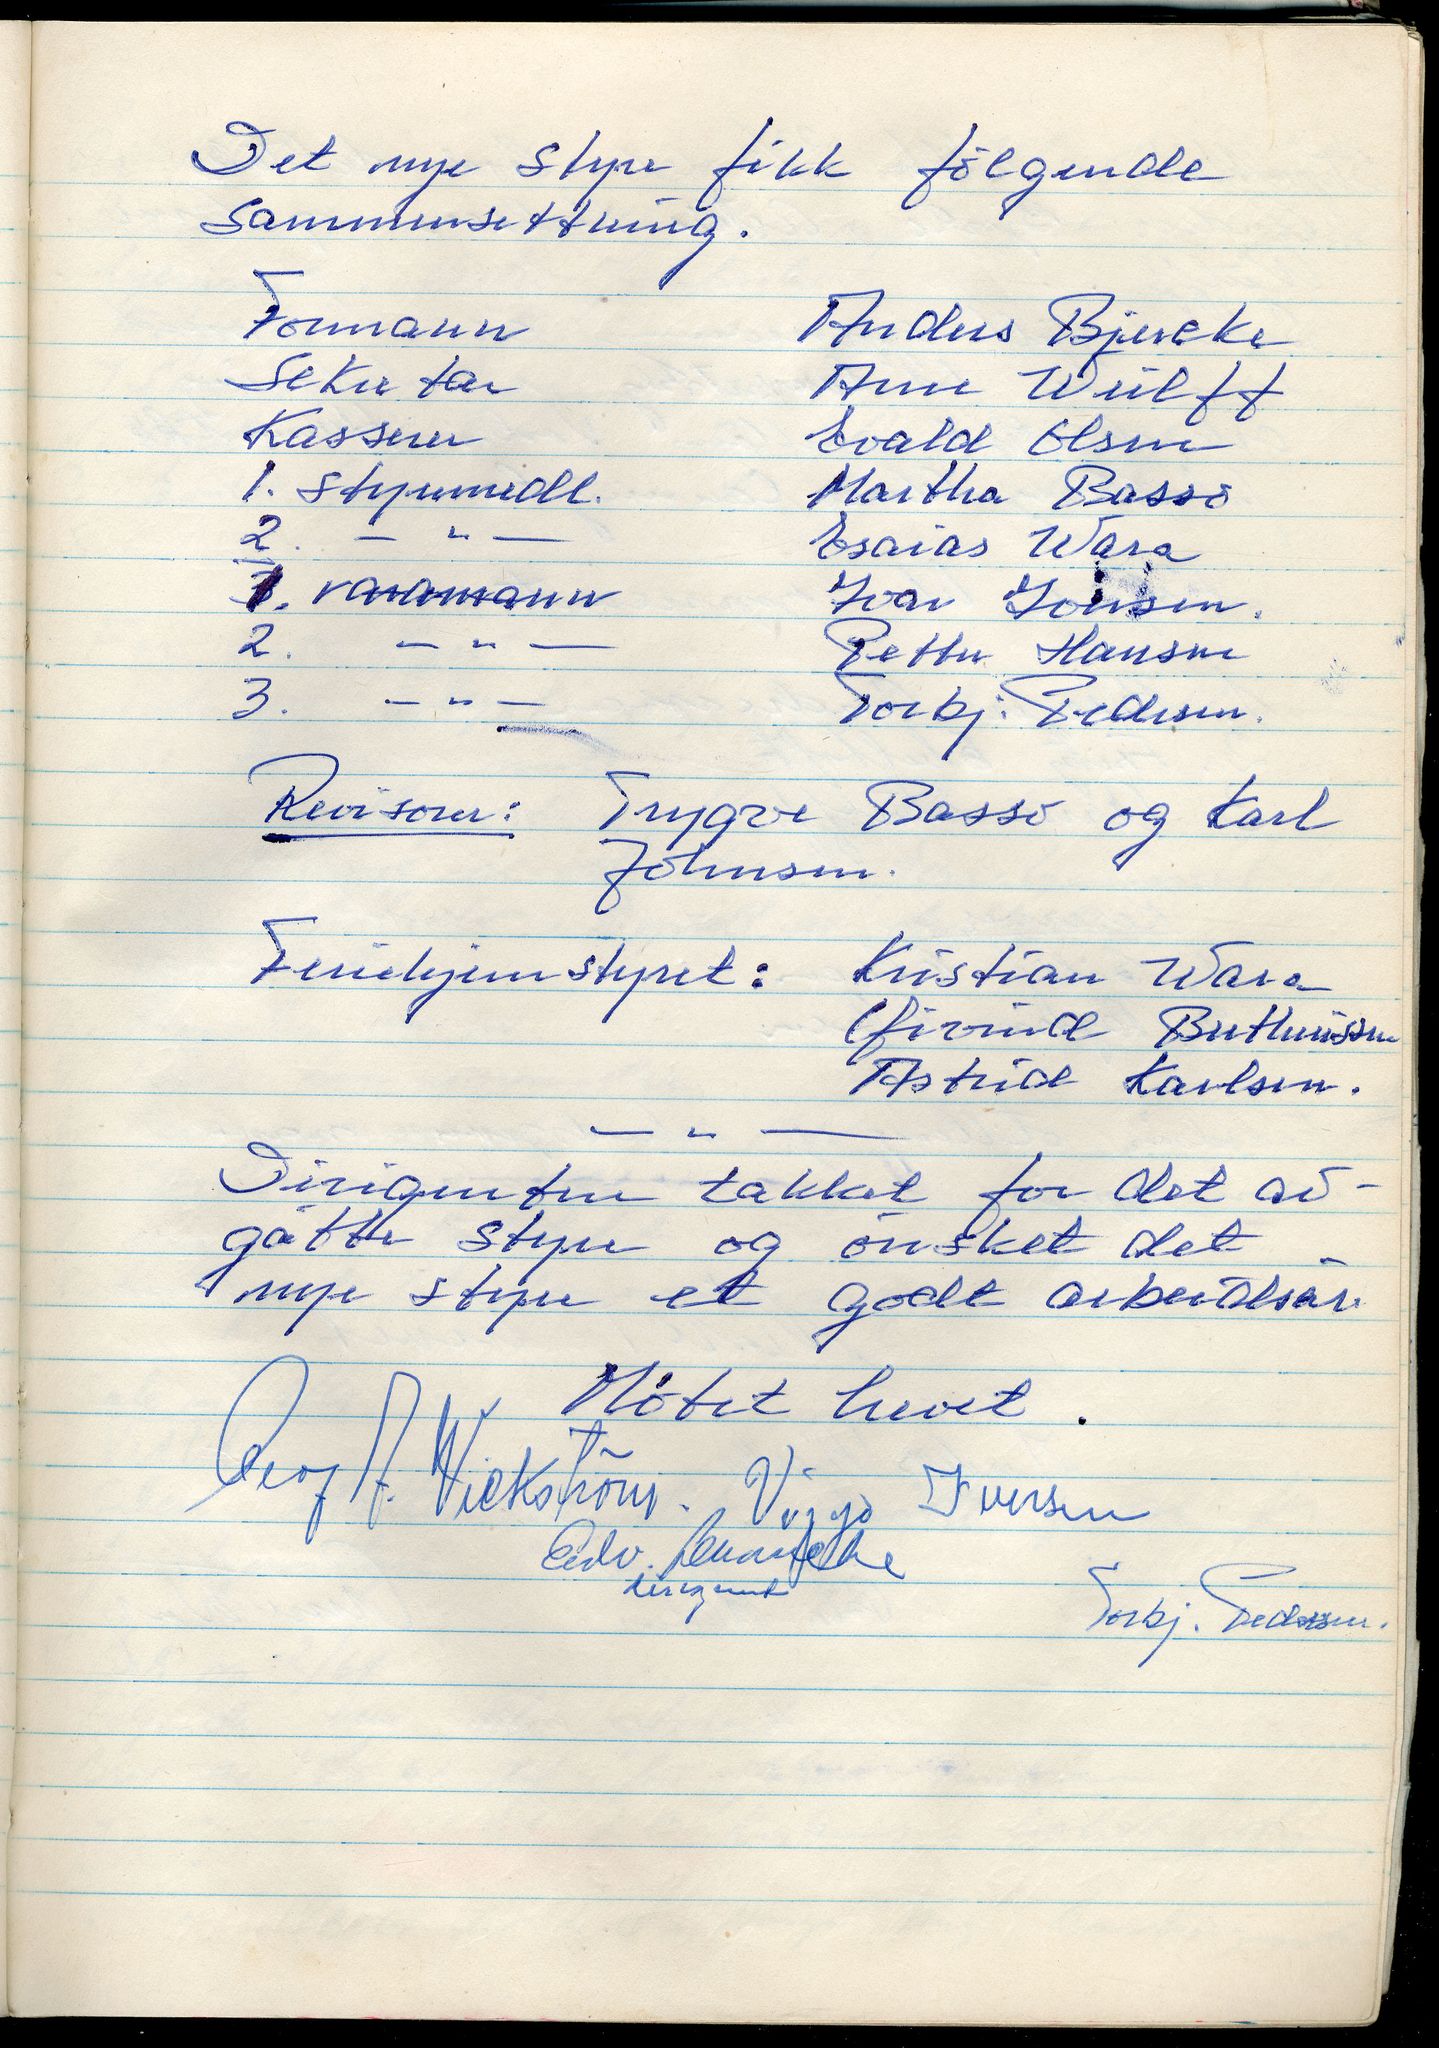 Det nye styre fikk följgende
sammensettning.
Formann Anders Bjercke
Sekretær Arne Wülff
Kasserer Evald Olsen
1. styremedl. Martha Bassö
2. — " — Esaias Wara
1. varamann Ivar Jonsen.
2. — " — Petter Hansen
3. — " — Torbj. Pedersen.
Revisorer: Trygve Bassö og Karl
Johnsen.
Feriehjemstyret: Kristian Wara
Öivind Berthinissen
Astrid Karlsen.
— " —
Dirigenten takket for det av-
gåtte styre og önsket det
nye styre et godt arbeidsår.
Mötet hevet.
A. Wickström. Viggo Iversen
Edv.
dirigent
Torbj. Pedersen.